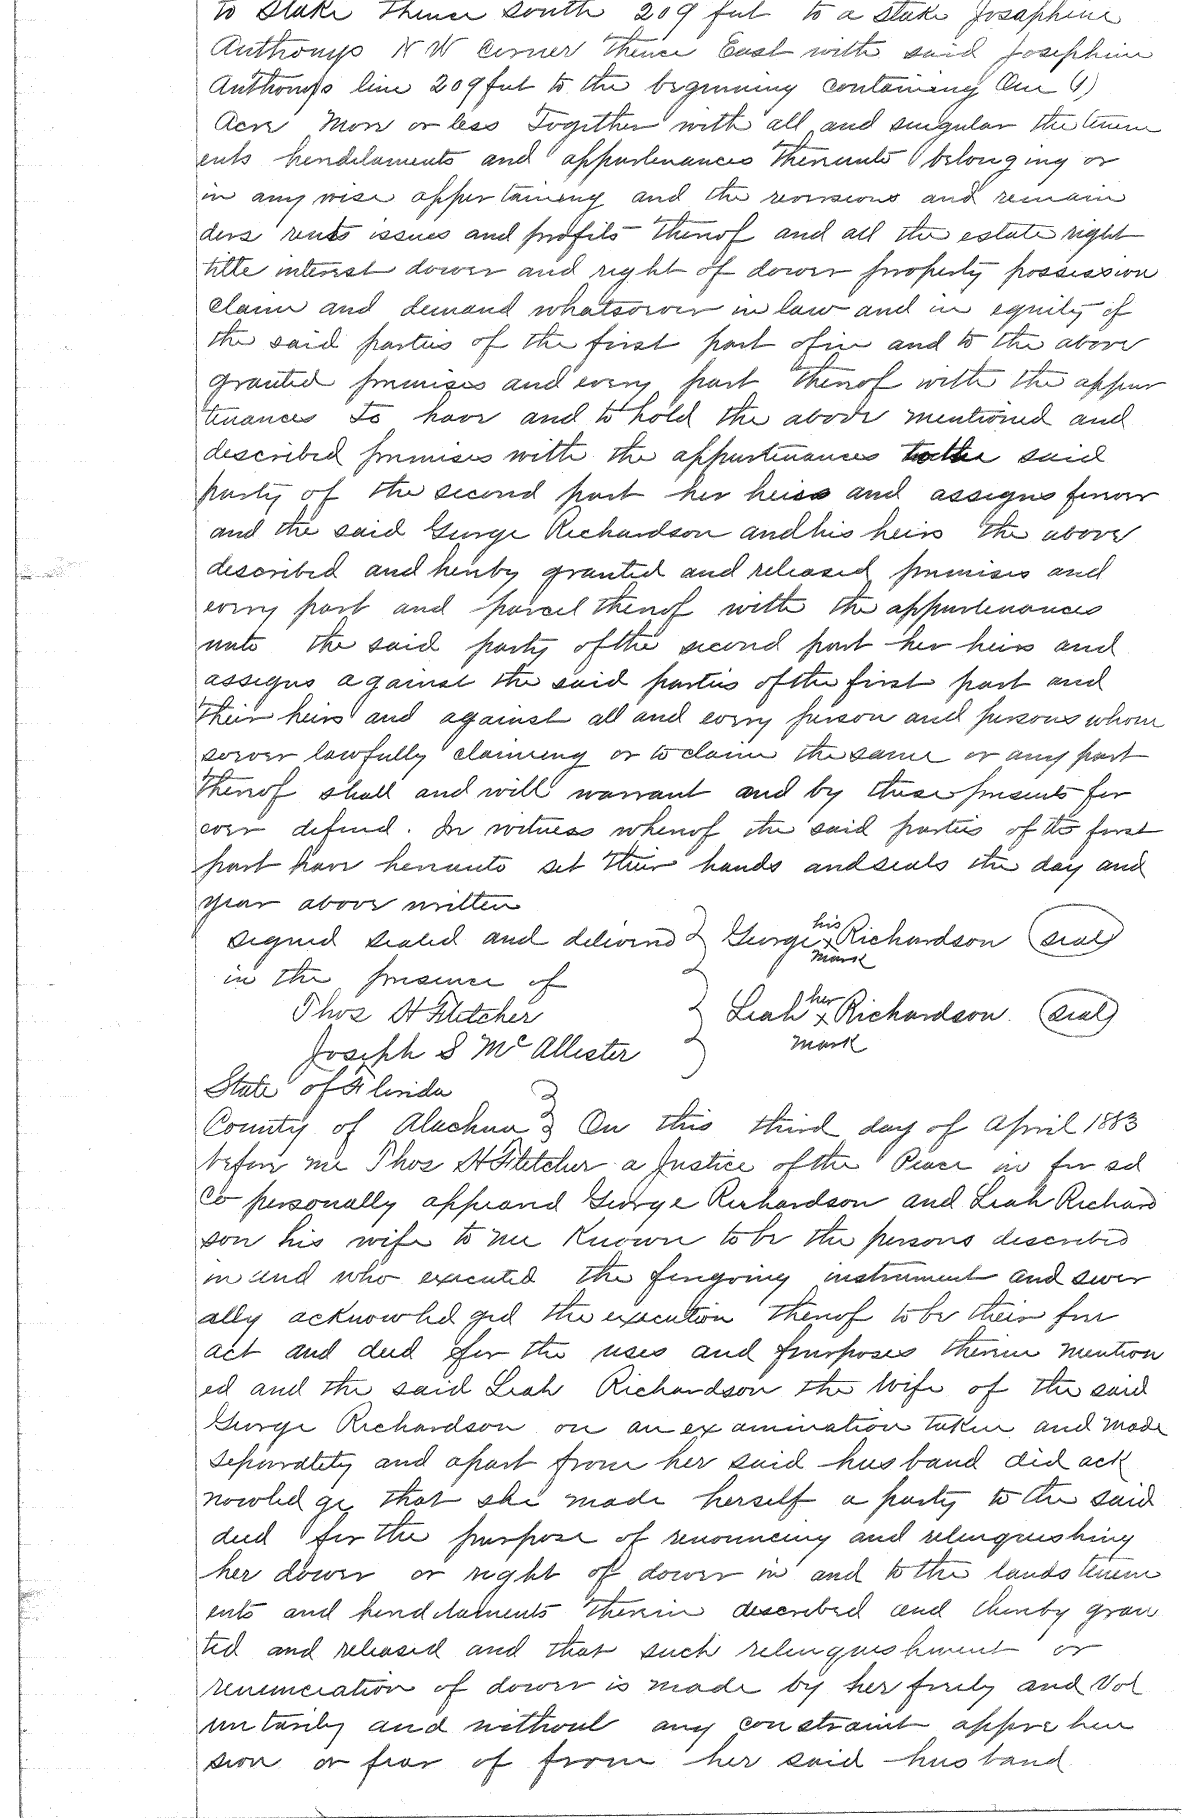 to Stake Thence South 209 feet to a Stake Josephine
Anthonys N W Corner Thence East with said Josephine
Anthonys line 209 feet to the beginning containing One (1)
Acre More or less Together with all and singular the tenem
ents hereditaments and appurtenances thereunto belonging or
in any wise appertaining and the reversions and remain
ders rents issues and profits thereof and all the estate right
title interest dower and right of dower property possession
claim and demand whatsoever in law and in equity of
the said parties of the first part of in and to the above
granted premises and every part thereof with the appur
tenances To have and to hold the above mentioned and
described premises with the appurtenances to the said
party of the second part her heirs and assigns forever
and the said George Richardson and his heirs the above
described and hereby granted and released premises and
every part and parcel thereof with the appurtenances
unto the said party of the second part her heirs and
assigns against the said parties of the first part and
their heirs and against all and every person and persons whom
soever lawfully claiming or to claim the same or any part
thereof shall and will warrant and by these presents for
ever defend. In witness whereof the said parties of the first
part have hereunto set their hands and seals the day and
year above written
Signed sealed and delivered } George his x mark Richardson (seal)
in the presence of
Thos H Fletcher } Leah her x mark Richardson. (seal)
Joseph S McAllister
State of Florida
County of Alachua } On this third day of April 1883
before me Thos H Fletcher a Justice of the Peace in for sd
Co personally appeared George Richardson and Leah Richard
son his wife to me Known to be the persons described
in and who executed the foregoing instrument and sever
ally acknowled ged the execution thereof to be their free
act and deed for the uses and purposes therein mention
ed and the said Leah Richardson the Wife of the said
George Richardson on an examination taken and made
separately and apart from her said husband did ack
nowled ge that she made herself a party to the said
deed for the purpose of renouncing and relinquishing
her dower or right of dower in and to the lands tenem
ents and hereditaments therein described and thereby gran
ted and released and that such relinquishment or
renunciation of dower is made by her freely and Vol
untarily and without any constraint apprehen
sion or fear of from her said husband